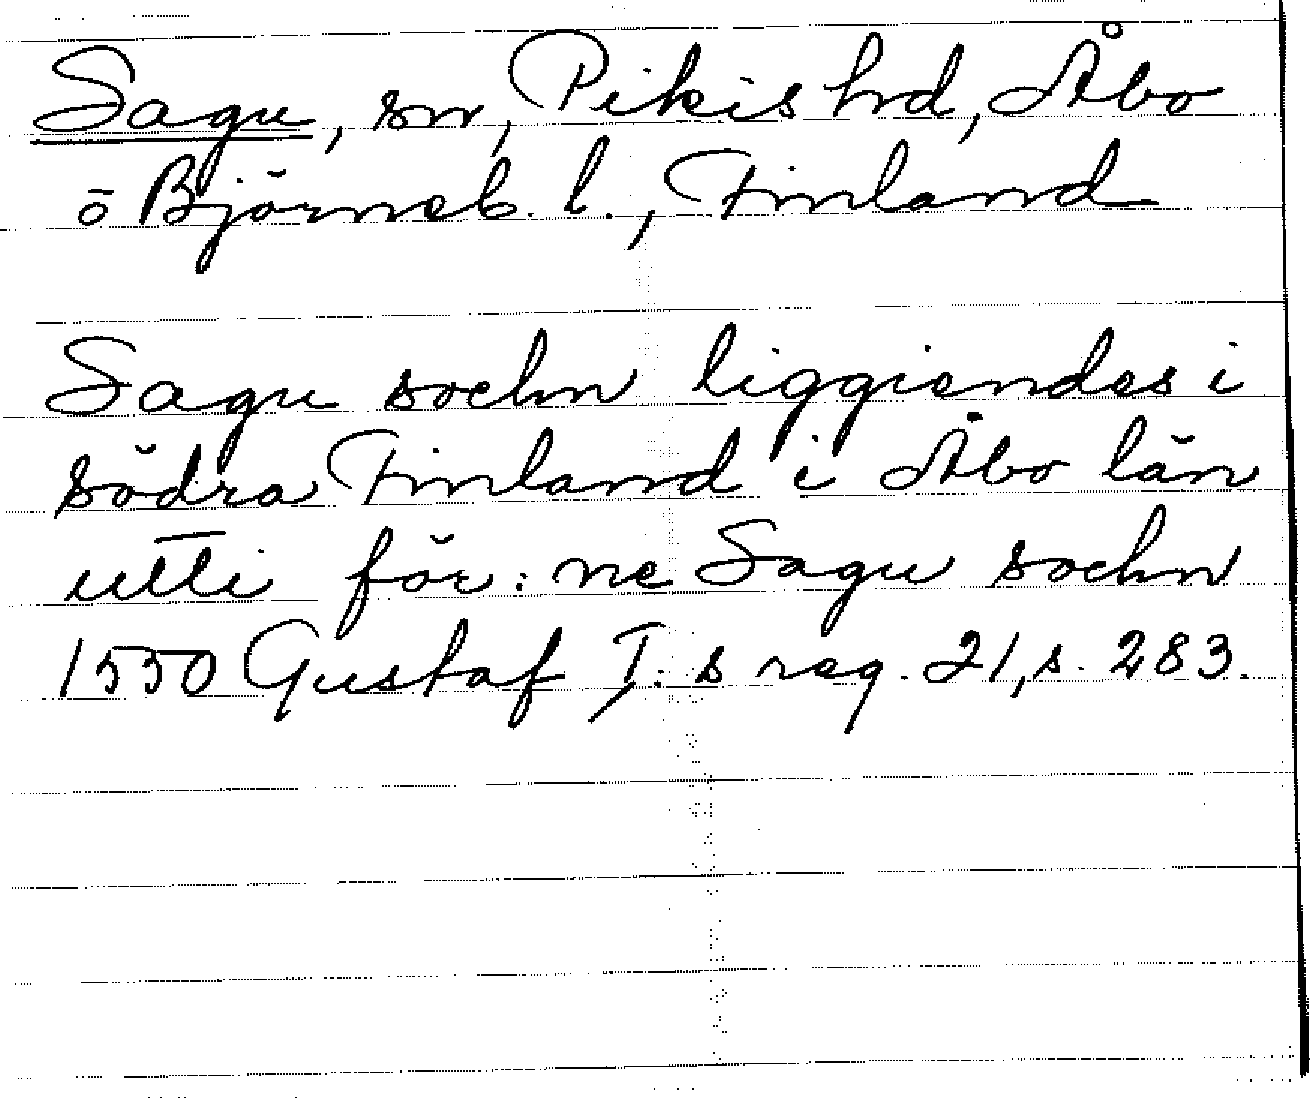 Sagu, sn, Pikis hd, Åbo
o Björneb. l., Finland
Sagu sochn liggiendes i
södra Finland i Åbo län
utti för: ne Sagu sochn
1550 Gustaf I: s reg. 21, s. 283.